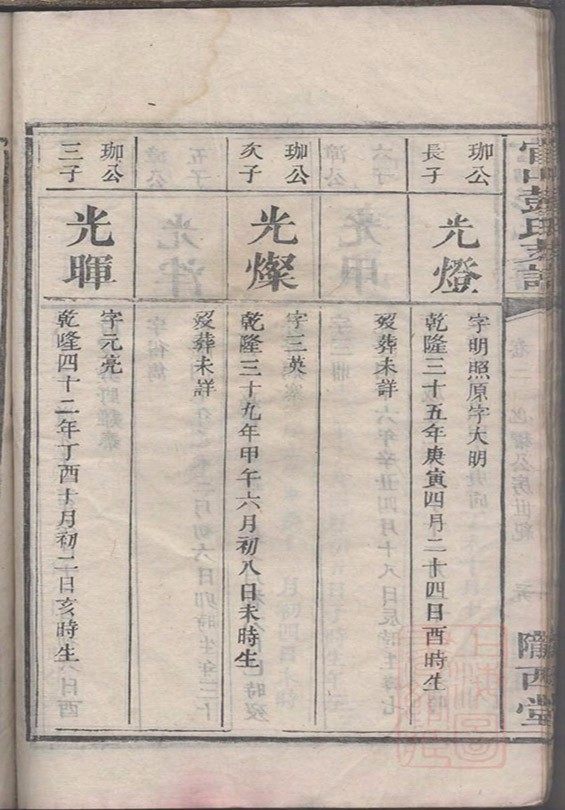 彭氏支譜
隴西堂
珈公
長子
光燈
字明照原字大明
乾隆三十五年庚寅四月二十四日酉時生
歿葬未詳
珈公
次子
光燦
字三英
乾隆三十九年甲午六月初八日未時生
歿葬未詳
珈公
三子
光暉
字元亮
乾隆四十二年丁酉十月初二日亥時生